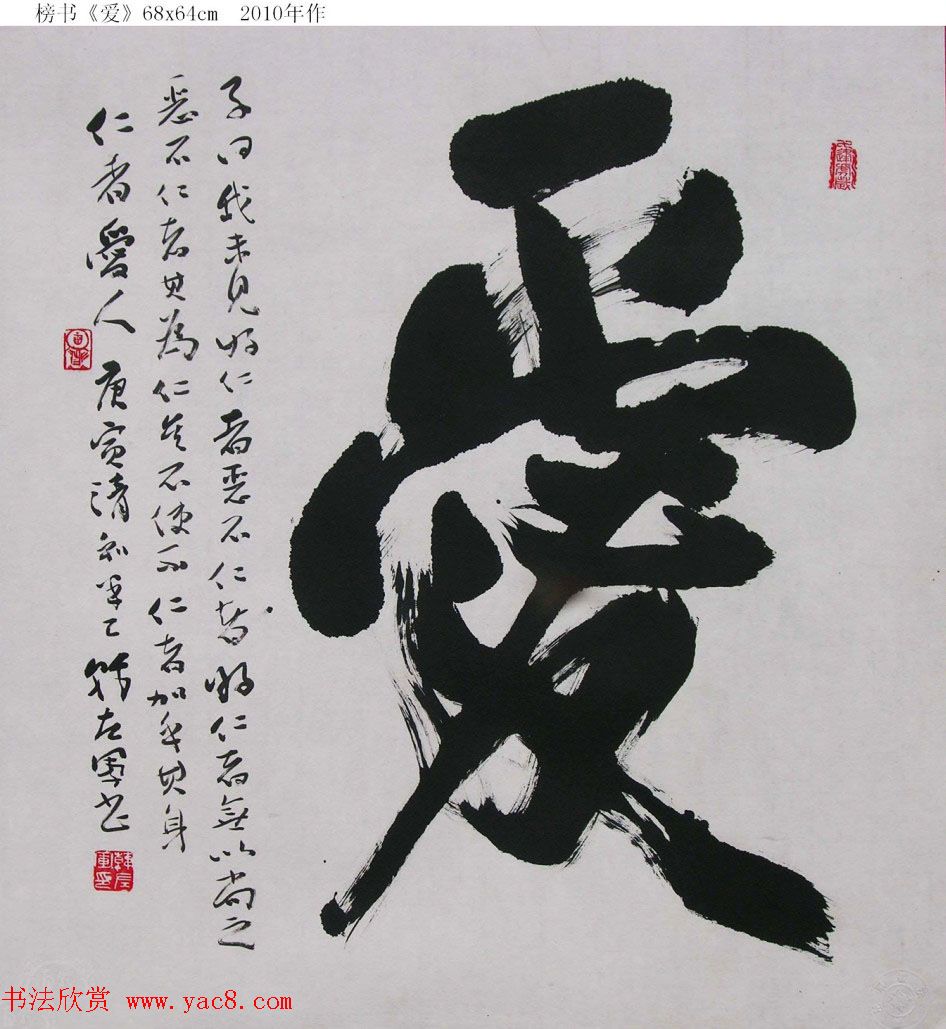 榜书《爱》68x64cm 2010年作
愛
子曰我未見好仁者惡不仁者好仁者無以尚之
惡不仁者其為仁矣不使不仁者加乎其身
仁者愛人 庚寅清和 韓左軍书
书法欣赏 www.yac8.com